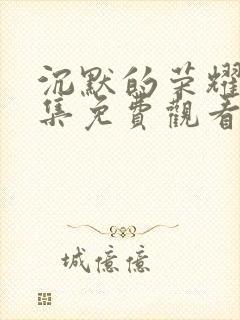 沉默的荣耀
集免費觀看
城億億